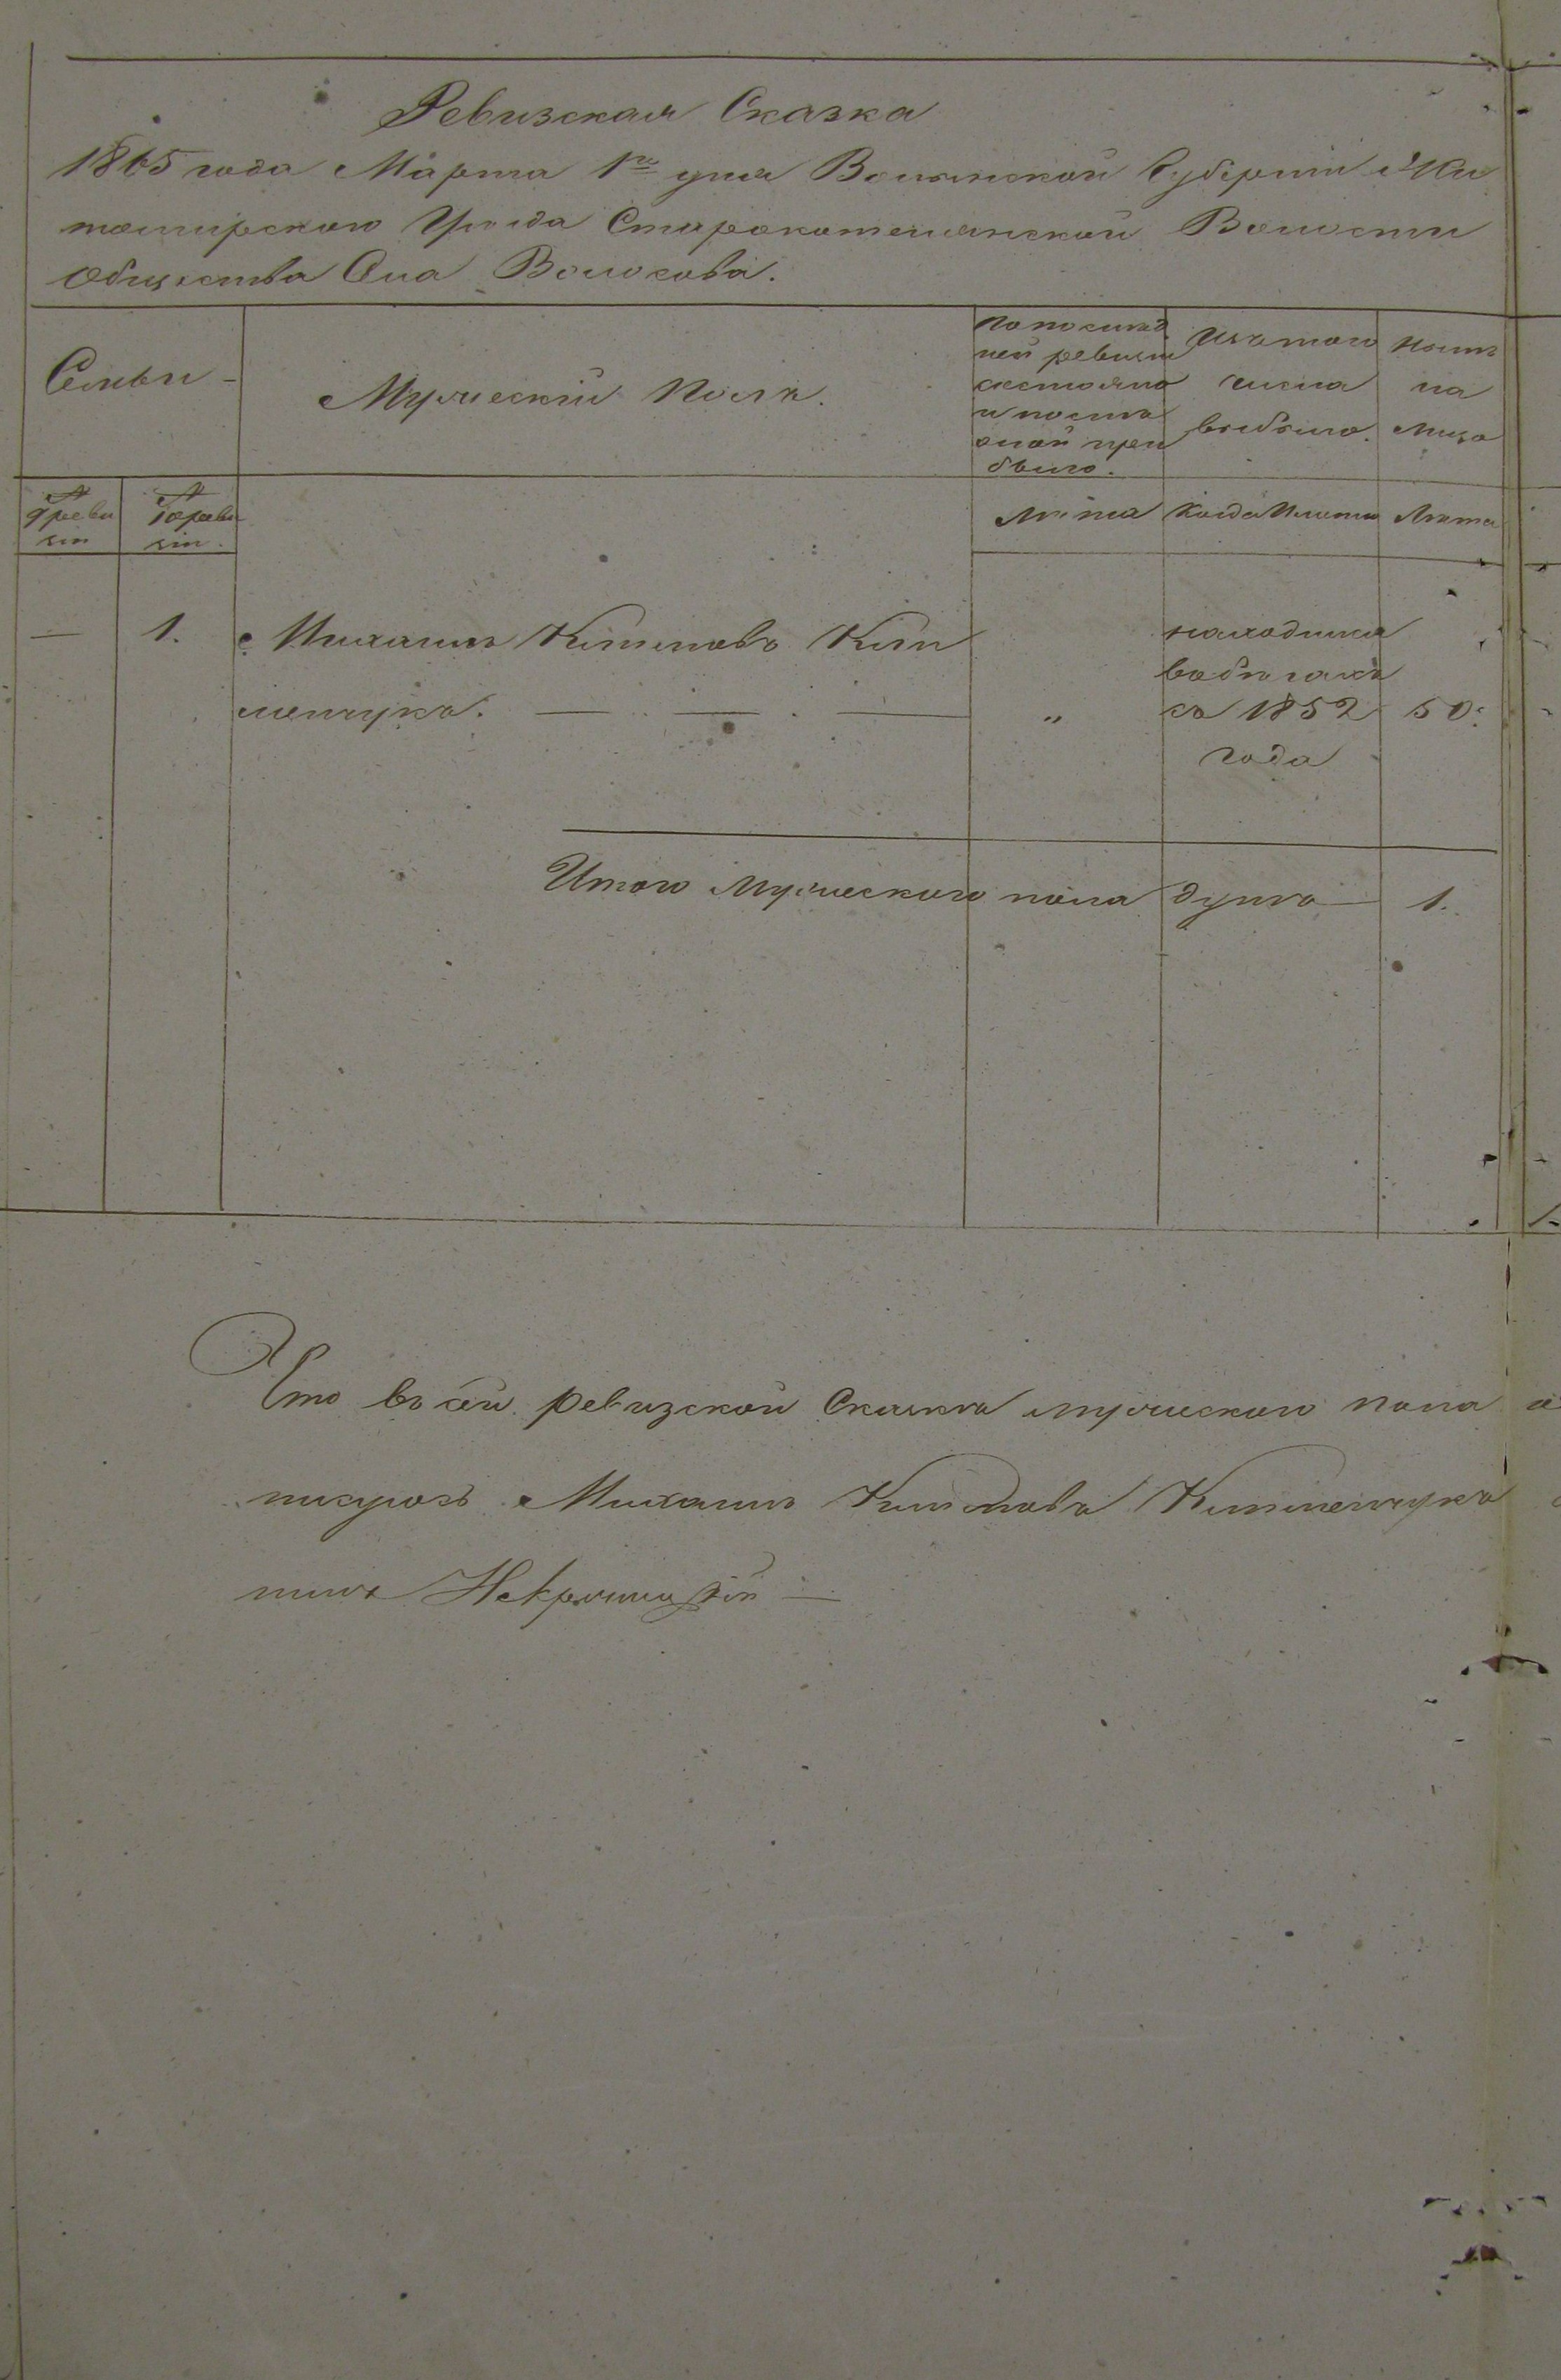 Ревизская Сказка
1865 года Марта 1го дня Волынской Губерніи Жи
томирского Уѣзда Старокотельнянской Волости
Общества Села Волосова.
Семьи
Мужескій Полъ.
По послѣд
ней ревизіи
состояло
и послѣ
оной при
было.
Изъ того
числа
выбыло.
Нынѣ
на
лицо
№
9 реви
зіи
№
10 реви
зіи.
Лѣта
Когда Именно
Лѣта
— 1. Михаилъ Климовъ Кли
менчукъ. — — —
"
находился
въ бѣгахъ
съ 1852
года
50.
Итого Мужеского пола душъ — 1.
Что въ сей ревизской Сказкѣ мужеского пола
Михаилъ Климовъ Клименчукъ